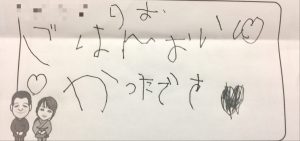 ごはんおいし♡
かったです♥